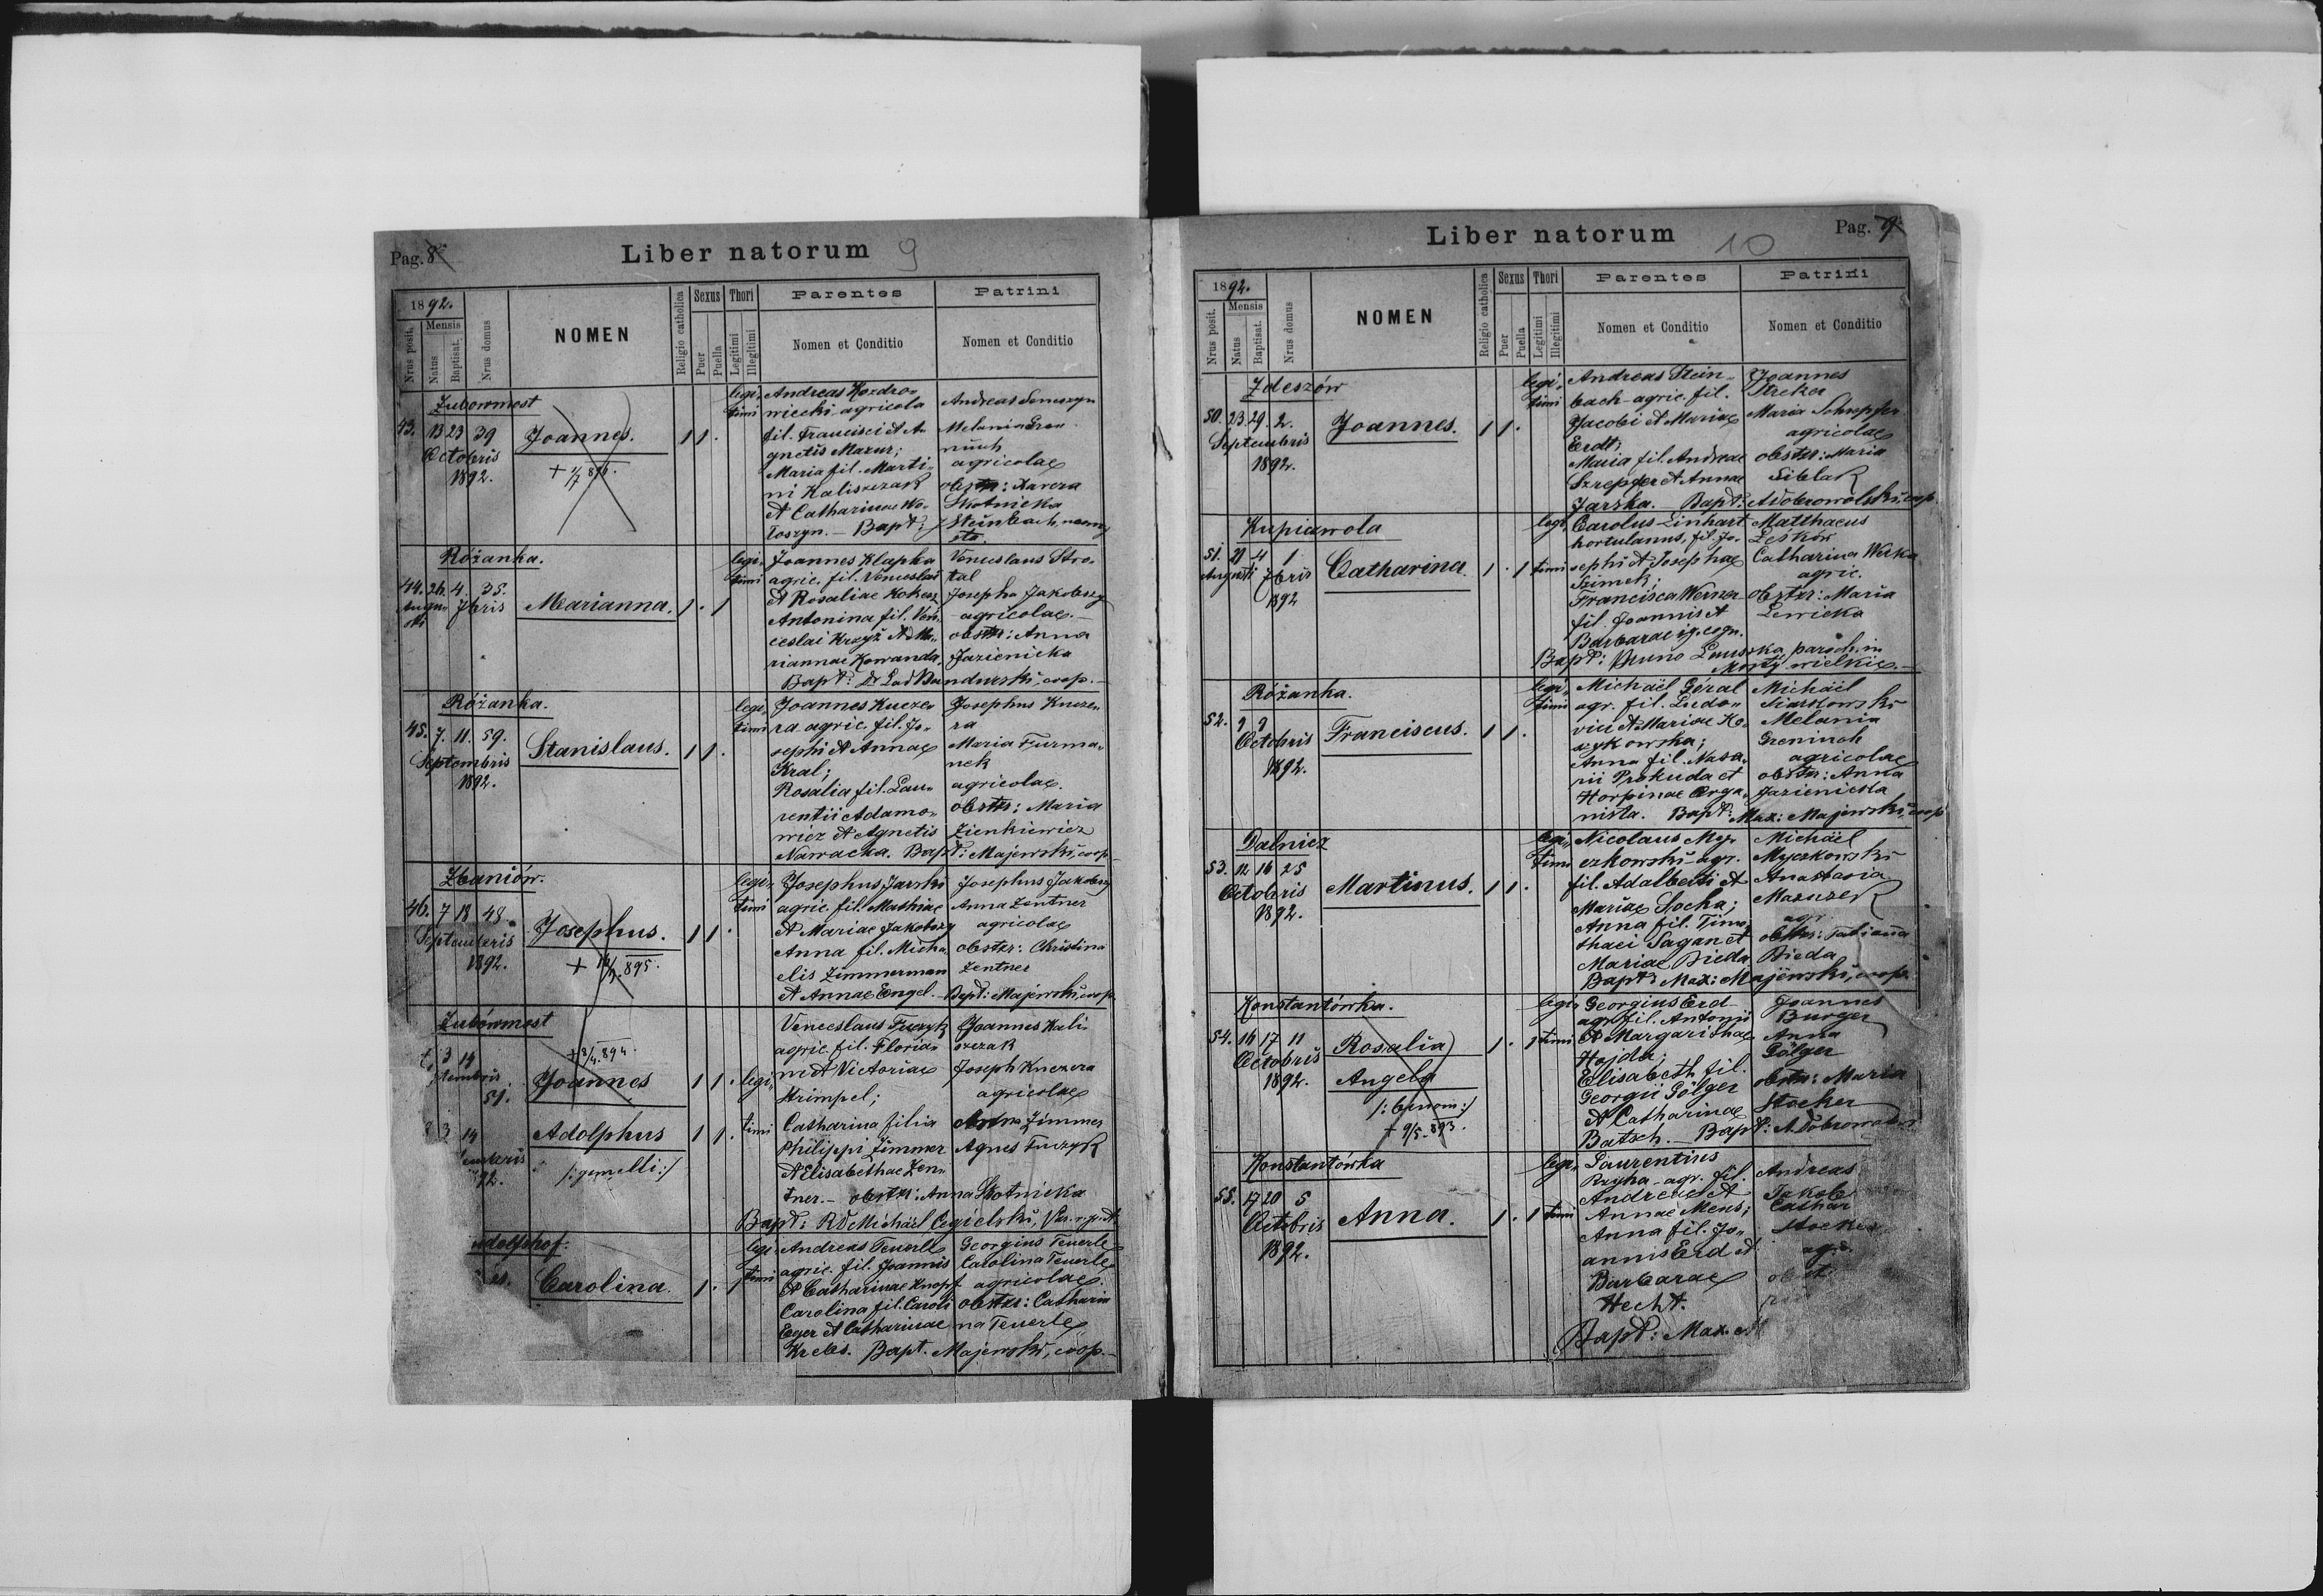 Pag. 8
Liber natorum 9
1892.
Nrus posit.
Mensis
Natus
Baptisat.
Nrus domus
NOMEN
Religio catholica
Sexus
Puer
Puella
Thori
Legitimi
Illegitimi
Parentes
Nomen et Conditio
Patrini
Nomen et Conditio
Zubowmost
43. 13 23 39
Octobris
1892.
Joannes. 1 1 .
legi-
timi
Andreas Kozdro-
wiecki agricola
fil. Francisci et A-
gnetis Mazur;
Maria fil. Marti-
ni Kaliszczak
et Catharinae Ko-
toszyn. — Bapt:
Andreas
Melania
agricolae
obstr: Xavera
Skotnicka
Steinbach
Różanka.
44. 26. 4. 35.
Augu- 7bris
sti
Marianna. 1 . 1
legi-
timi
Joannes Klapka
agric. fil. Venceslai
et Rosaliae Kokesz
Antonina fil. Ven-
ceslai Krzyż et Ma-
riannae Kowanda.
Venceslaus Stro-
tal
Josepha Jakobszy
agricolae. —
obstr: Anna
Jazienicka
Bapt: Dr Lad Bandurski, coop. —
Różanka.
45. 7. 11. 59.
Septembris
1892.
Stanislaus. 1 1 .
legi-
timi
Joannes Kucze-
ra agric. fil. Jo-
sephi et Annae
Kral;
Rosalia fil. Lau-
rentii Adamo-
wicz et Agnetis
Nawacka.
Josephus Kucze-
ra
Maria Furma-
nek
agricolae.
obstr: Maria
Zienkiewicz
Bapt: Majewski, coop —
Zbaniów.
46. 7 18 48.
Septembris
1892.
Josephus. 1 1 .
895.
legi-
timi
Josephus Jarski
agric. fil. Mathiae
et Mariae Jakobszy
Anna fil. Micha-
elis Zimmerman
et Annae Engel. —
Josephus Jakobszy
Anna Zentner
agricolae
obstr: Christina
Zentner
Bapt: Majewski, coop.
Zubówmost
3 14
51.
+ 8/4.894.
Joannes 1 1 .
legi-
3 14
Adolphus 1 1 .
timi
/: gemelli :/
Venceslaus Fuczyk
agric. fil. Floria-
ni et Victoriae
Krimpel;
Catharina filia
Philippi Zimmer
et Elisabethae Zen-
tner. — obstr: Anna Skotnicka
Joannes Kali-
szczak
Joseph Kuczera
agricolae
Anna Zimmer
Agnes Fuczyk
Bapt: RD Michäel Cegielski,
adolphof:
Carolina. 1 . 1
legi-
timi
Andreas Teuerle
agric. fil. Joannis
et Catharinae Knopf
Carolina fil. Caroli
Eger et Catharinae
Krebs.
Georgius Teuerle
Carolina Teuerle
agricolae.
obstr: Cathari-
na Teuerle
Bapt. Majewski, coop. —
Liber natorum 10
Pag. 9
1892.
Nrus posit.
Mensis
Natus
Baptisat.
Nrus domus
NOMEN
Religio catholica
Sexus
Puer
Puella
Thori
Legitimi
Illegitimi
Parentes
Nomen et Conditio
Patrini
Nomen et Conditio
Zdeszów
50. 23. 29. 2.
Septembris
1892.
Joannes. 1 1 .
legi-
timi
Andreas Stein-
bach - agric. fil.
Jacobi et Mariae
Erdt;
Maria fil. Andreae
Szrepfer et Annae
Jarska.
Joannes
Streker
Maria Schrepfer
agricolae
obstr: Maria
Siblak
Bapt: A Dobrowolski coop.
Kupiawola
51. 20 4 1
Augusti 7bris
1892
Catharina. 1 . 1
legi-
timi
Carolus Linhart
hortulanus, fil. Jo-
sephi et Josephae
Szimek;
Francisca Werner
fil. Joannis et
Barbarae ig. cogn.
Matthaeus
Leśków
Catharina Werka
agric.
obstr: Maria
Lewicka
Bapt: Bruno paroch. in
Mosty wielkie. —
Różanka.
52. 9 9
Octobris
1892.
Franciscus. 1 1 .
legi-
timi
Michäel Géral
agr. fil. Ludo-
vici et Mariae Ko-
zykowska;
Anna fil. Naza-
rii Prokuda et
Horpinae Orga-
nista.
Michäel
Siarkowski
Melania
Greninch
agricolae
obstr: Anna
Jazienicka
Bapt: Max: Majewski, coop
Dalnicz
53. 12 16 25
Octobris
1892.
Martinus. 1 1 .
legi-
timi
Nicolaus My-
czkowski - agr.
fil. Adalberti et
Mariae Socha;
Anna fil. Timo-
thaei Sagan et
Mariae Dieda
Michäel
Myczkowski
Anastasia
Mazurek
agr.
obstr: Tatianna
Dieda
Bapt: Max: Majewski, coop.
Konstantówka.
54. 16 17 11
Octobris
1892.
Rosalia
Angela
/: binom :/
+ 9/5. 893.
1 . 1
legi-
timi
Georgius Erd -
agr. fil. Antonii
et Margarithae
Hojda;
Elisabeth fil.
Georgii Gölger
et Catharinae
Batsch. —
Joannes
Burger
Anna
Gölger
obstr: Maria
Stocker
Bapt: A. Dobrowolski
Konstantówka
55. 17 20 5
Octobris
1892.
Anna. 1 . 1
legi-
timi
Laurentius
Rzyha - agr. fil.
Andreae et
Annae Mens;
Anna fil. Jo-
annis Erd et
Barbarae
Hecht.
Andreas
Jakob
Cathar
Stocker
agr.
obst
Bapt: Max. M